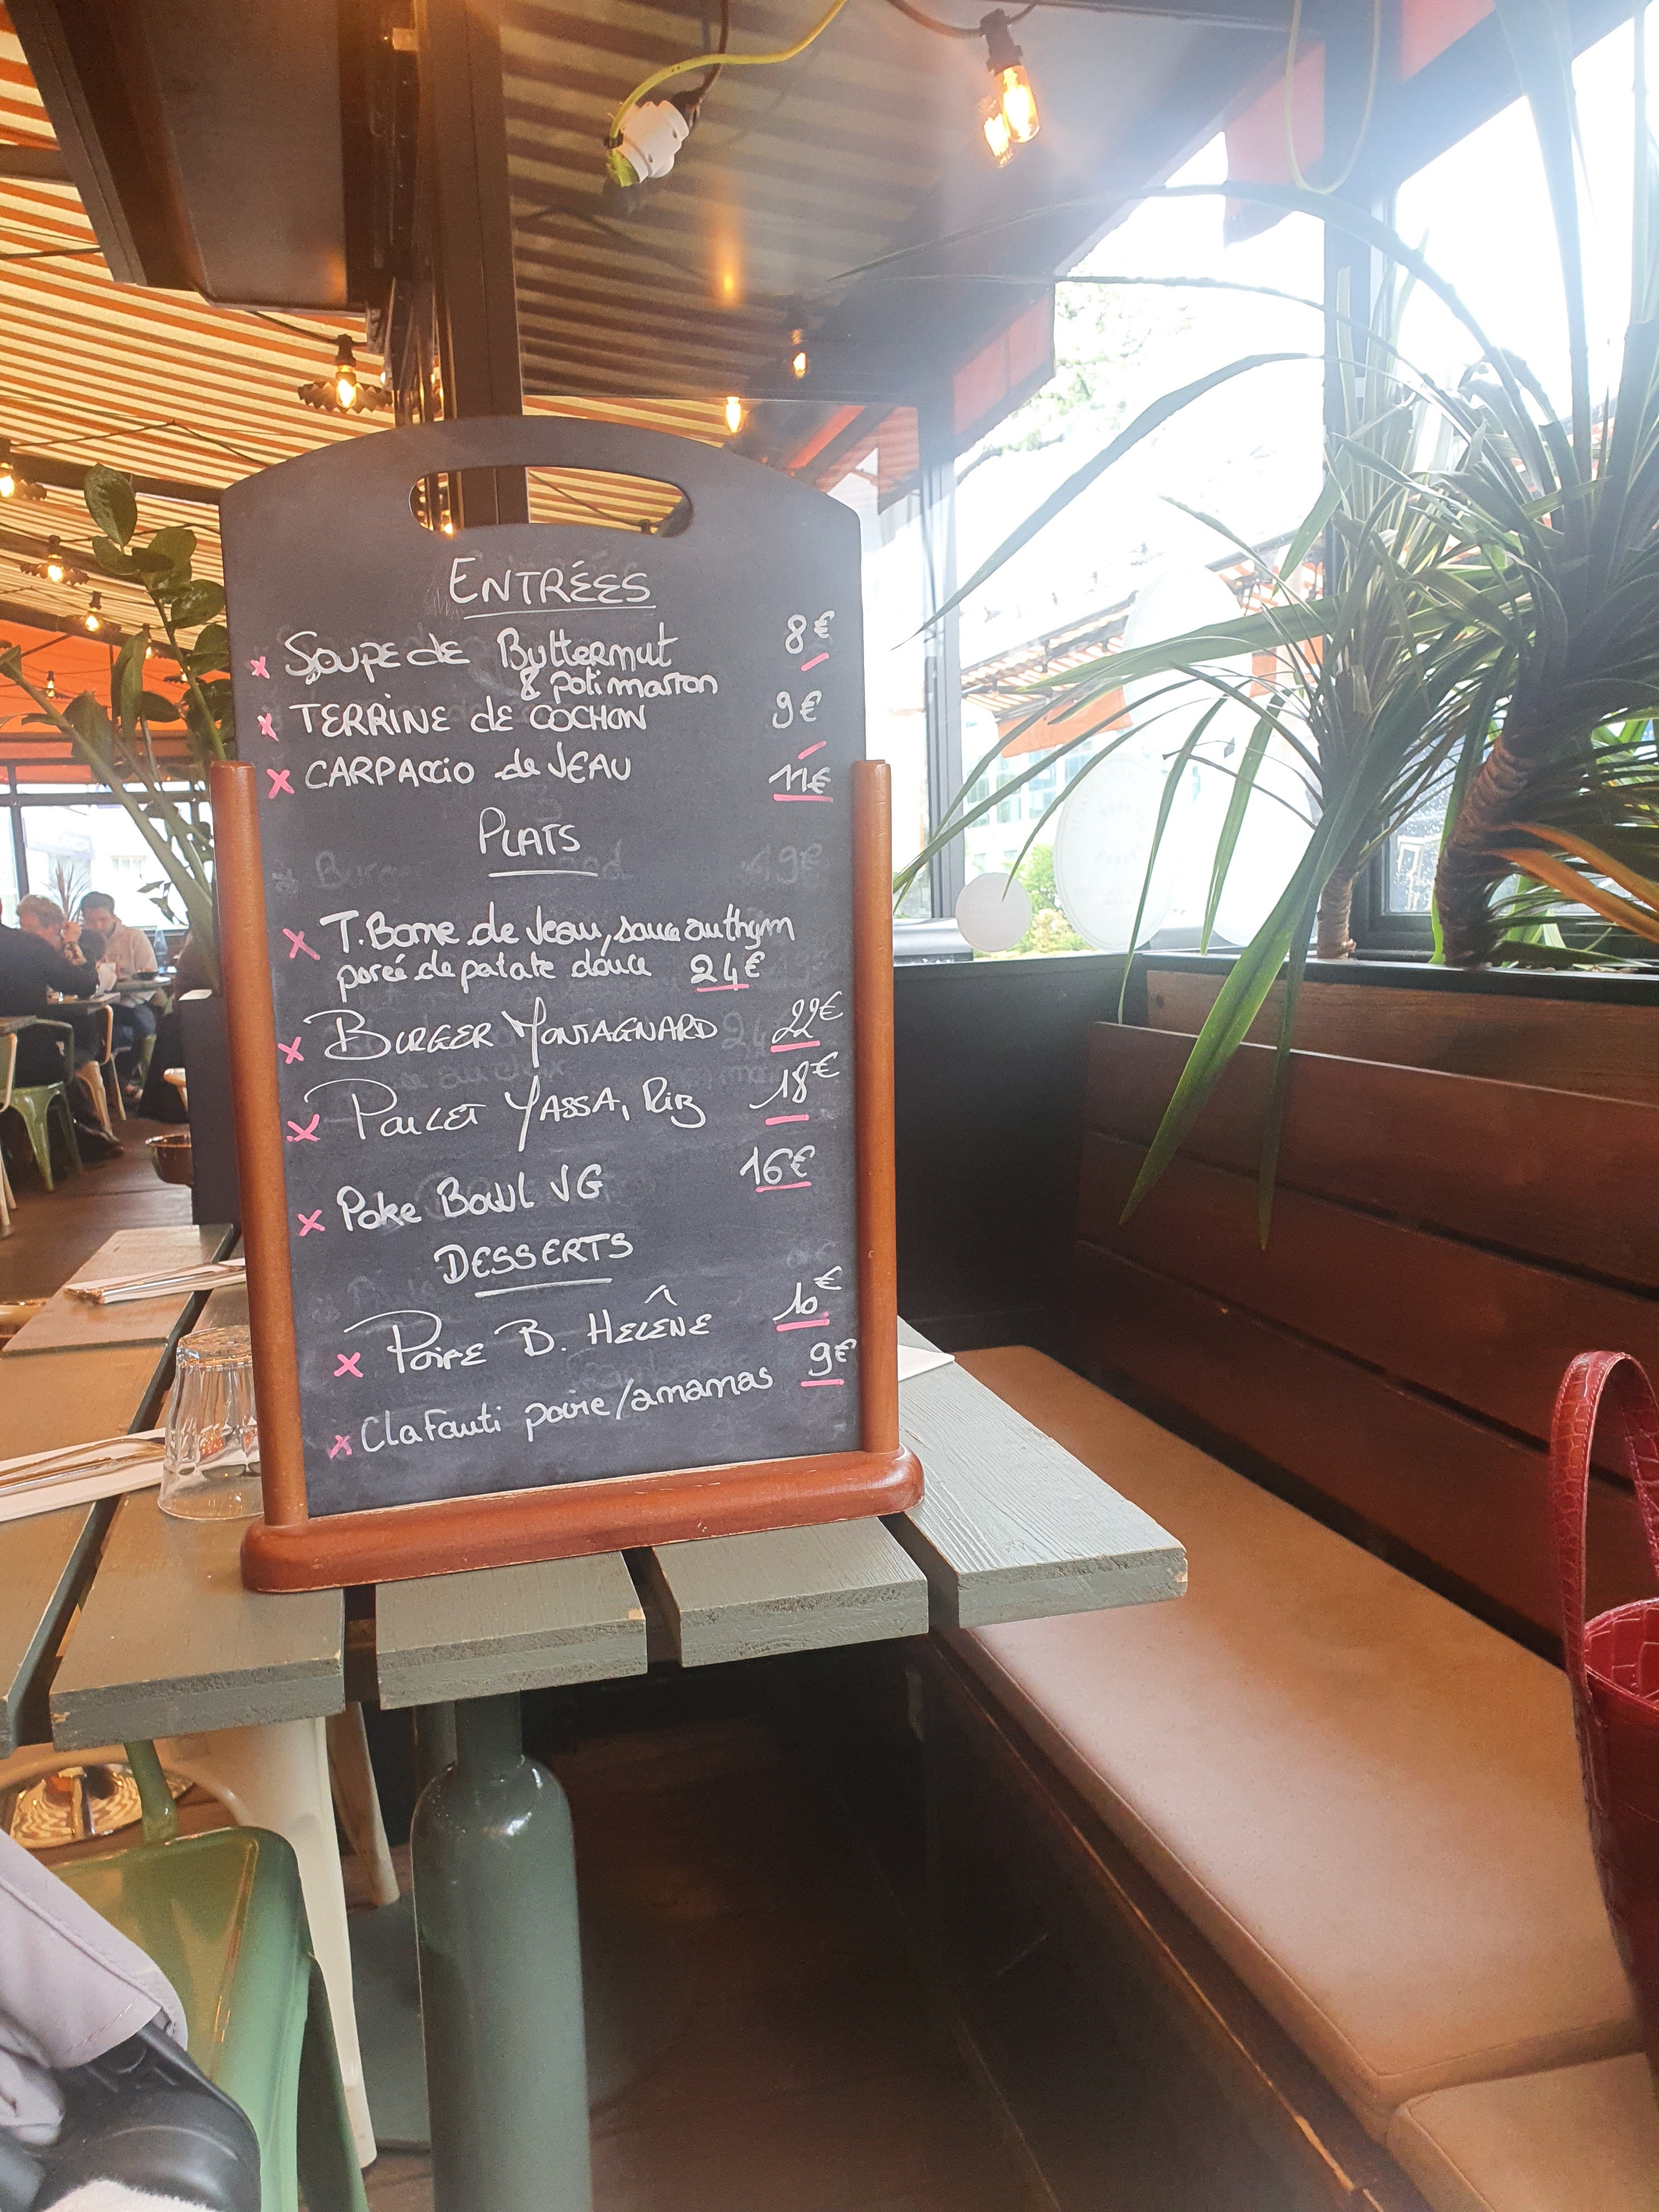 ENTRÉES
x Soupe de Butternut 8€
& potimarron
x TERRINE de COCHON 9€
x CARPACCIO de VEAU 11€
PLATS
x T.Bone de Veau, sauce au thym
purée de patate douce 24€
x BURGER MONTAGNARD 22€
x POULET YASSA, Riz 18€
x Poke Bowl VG 16€
DESSERTS
x POIRE B. HELÊNE 10€
x Clafouti poire/ananas 9€